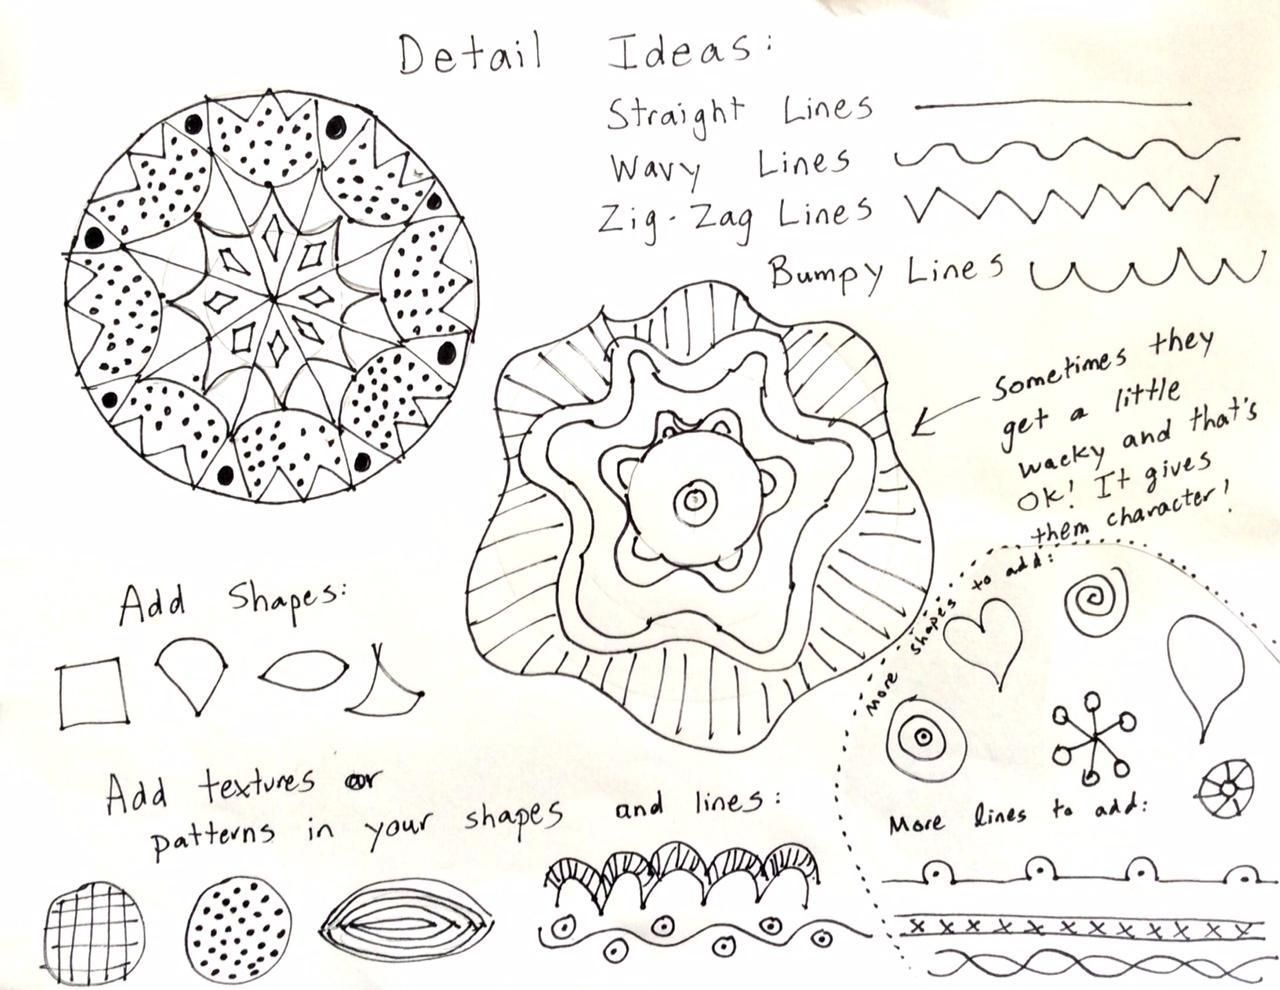 Detail Ideas:
Straight Lines
Wavy Lines
Zig-Zag Lines
Bumpy Lines
Sometimes they
get a little
wacky and that's
OK! It gives
them character!
Add Shapes:
More shapes to add:
Add textures or
patterns in your shapes and lines:
More lines to add: